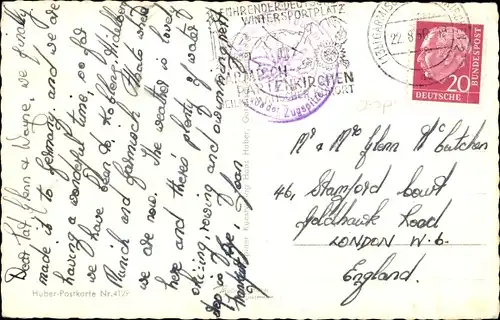 Dear Pat, Glenn & Wayne, we finally
made it to Germany and we are
having a wonderful time, so far
we have been to Koblenz, Heidelberg
Munich and Garmisch that's where
we are now. The weather is lovely
here and there's plenty of water
skiing, rowing and swimming
Joan
Huber-Postkarte Nr. 4129
FÜHRENDER DEUTSCHER
WINTERSPORTPLATZ
PARTENKIRCHEN
der Zugspitze
22.8.56
20
DEUTSCHE
BUNDESPOST
Mr & Mrs Glenn McCutchen
46, Stamford Court
Goldhawk Road
LONDON W.6.
England.